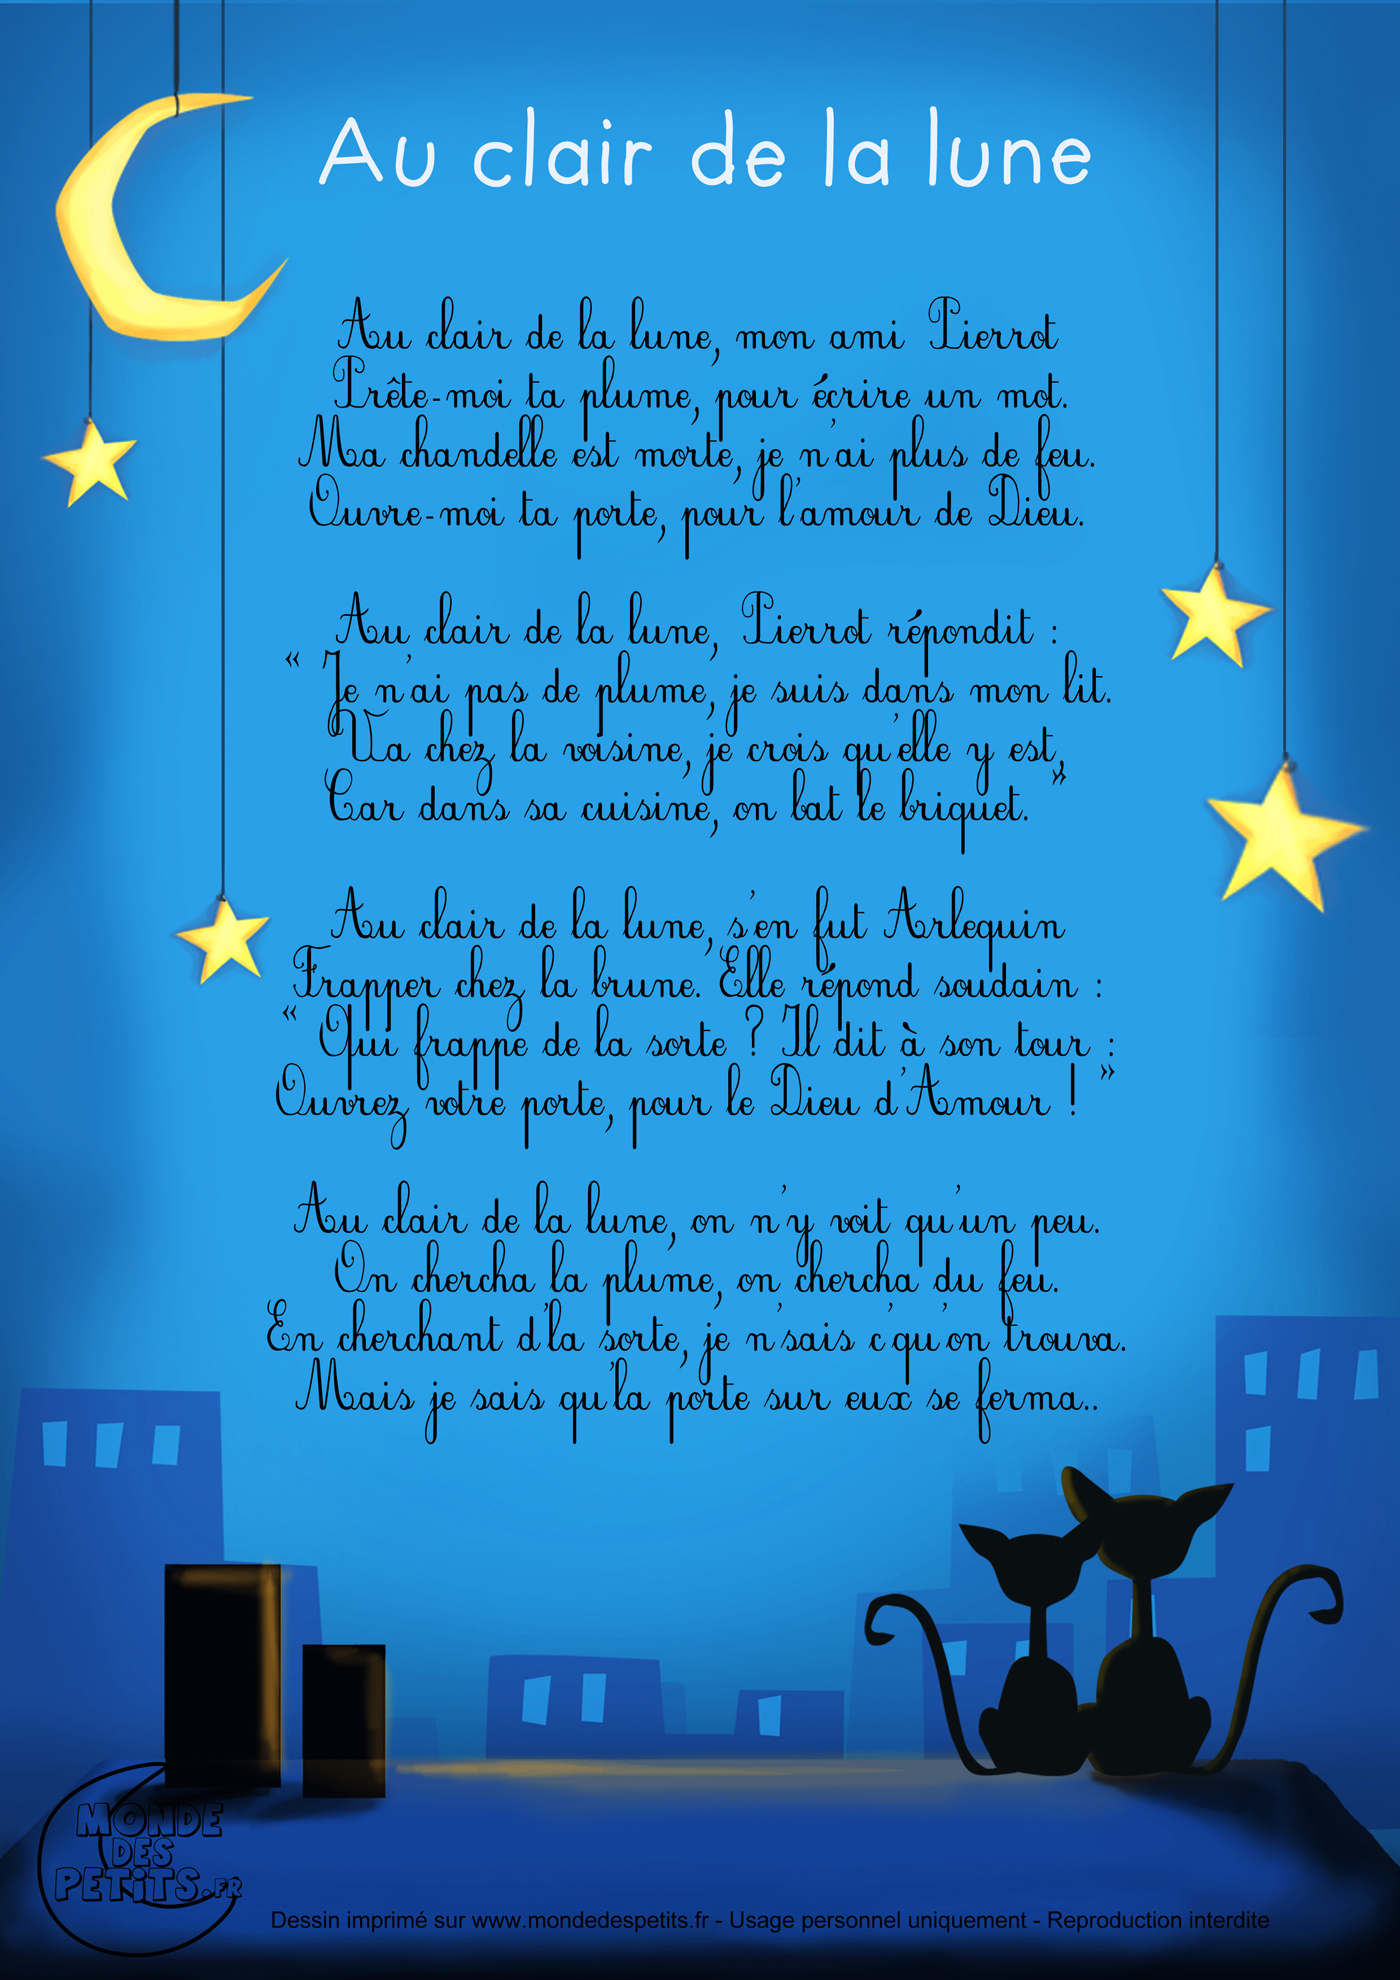 Au clair de la lune
Au clair de la lune, mon ami Pierrot
Prête-moi ta plume, pour écrire un mot.
Ma chandelle est morte, je n'ai plus de feu.
Ouvre-moi ta porte, pour l'amour de Dieu.
Au clair de la lune, Pierrot répondit :
“ Je n'ai pas de plume, je suis dans mon lit.
Va chez la voisine, je crois qu'elle y est,
Car dans sa cuisine, on bat le briquet. ”
Au clair de la lune, s'en fut Arlequin
Frapper chez la brune. Elle répond soudain :
“ Qui frappe de la sorte ? Il dit à son tour :
Ouvrez votre porte, pour le Dieu d'Amour ! ”
Au clair de la lune, on n'y voit qu'un peu.
On chercha la plume, on chercha du feu.
En cherchant d'la sorte, je n'sais c'qu'on trouva.
Mais je sais qu'la porte sur eux se ferma..
MONDE
DES
PETiTS.FR
Dessin imprimé sur www.mondedespetits.fr - Usage personnel uniquement - Reproduction interdite